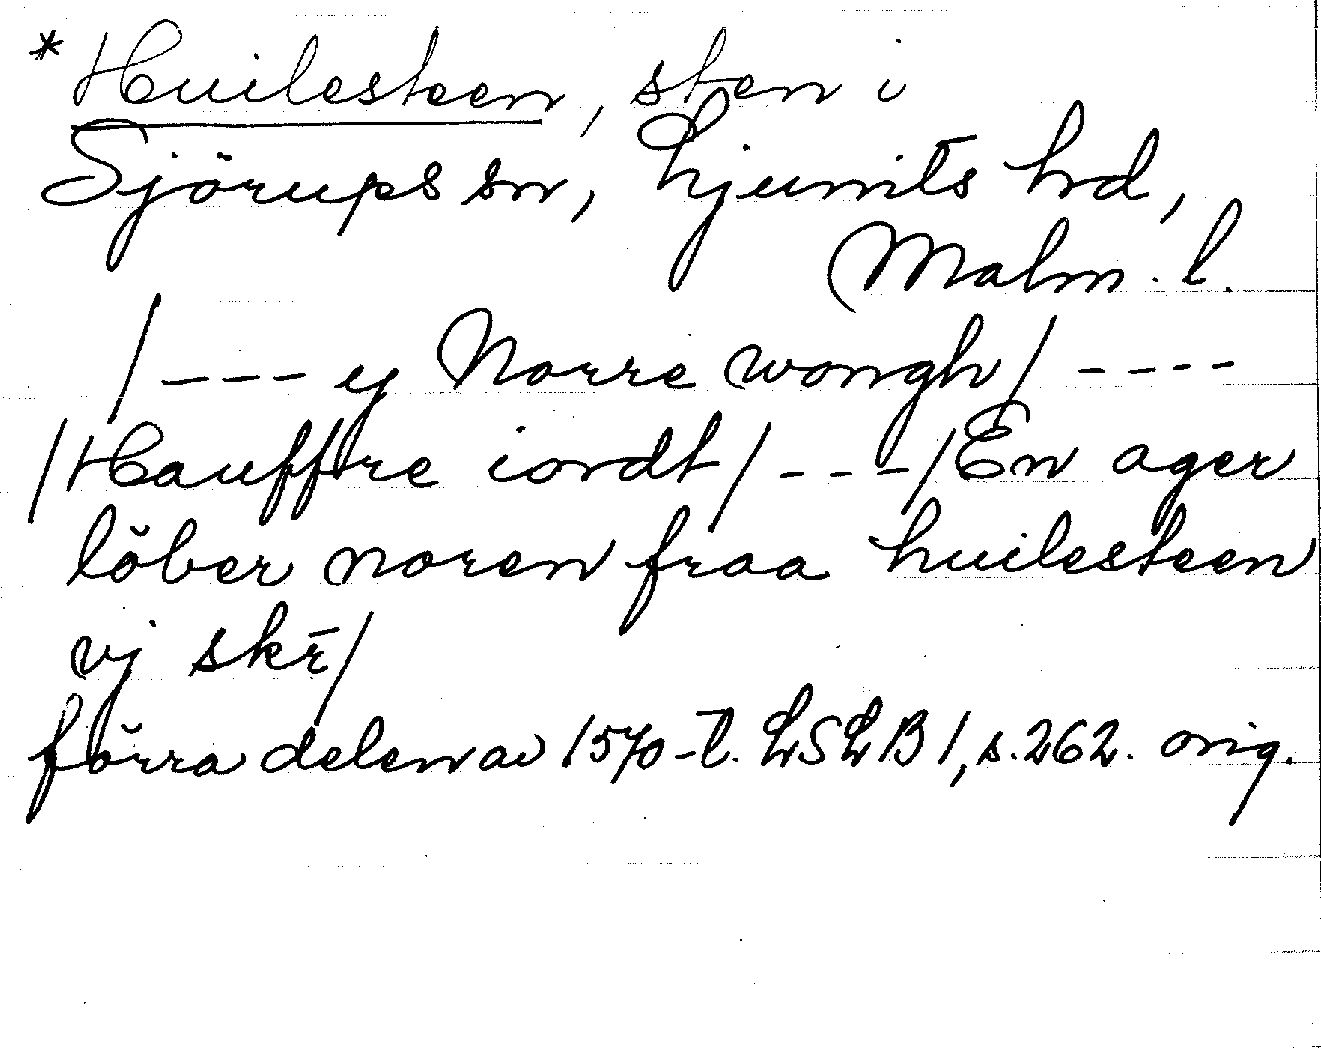 * Huilesteen, sten i
Sjörups sn, Ljunits hd,
Malm. l.
/--- ej Norre wongh/ ----
/Hauffre iordt/ ---/En ager
löber noren fraa huilesteen
vj skr̄/
förra delen av 1570-t. LSLB 1, s. 262. orig.